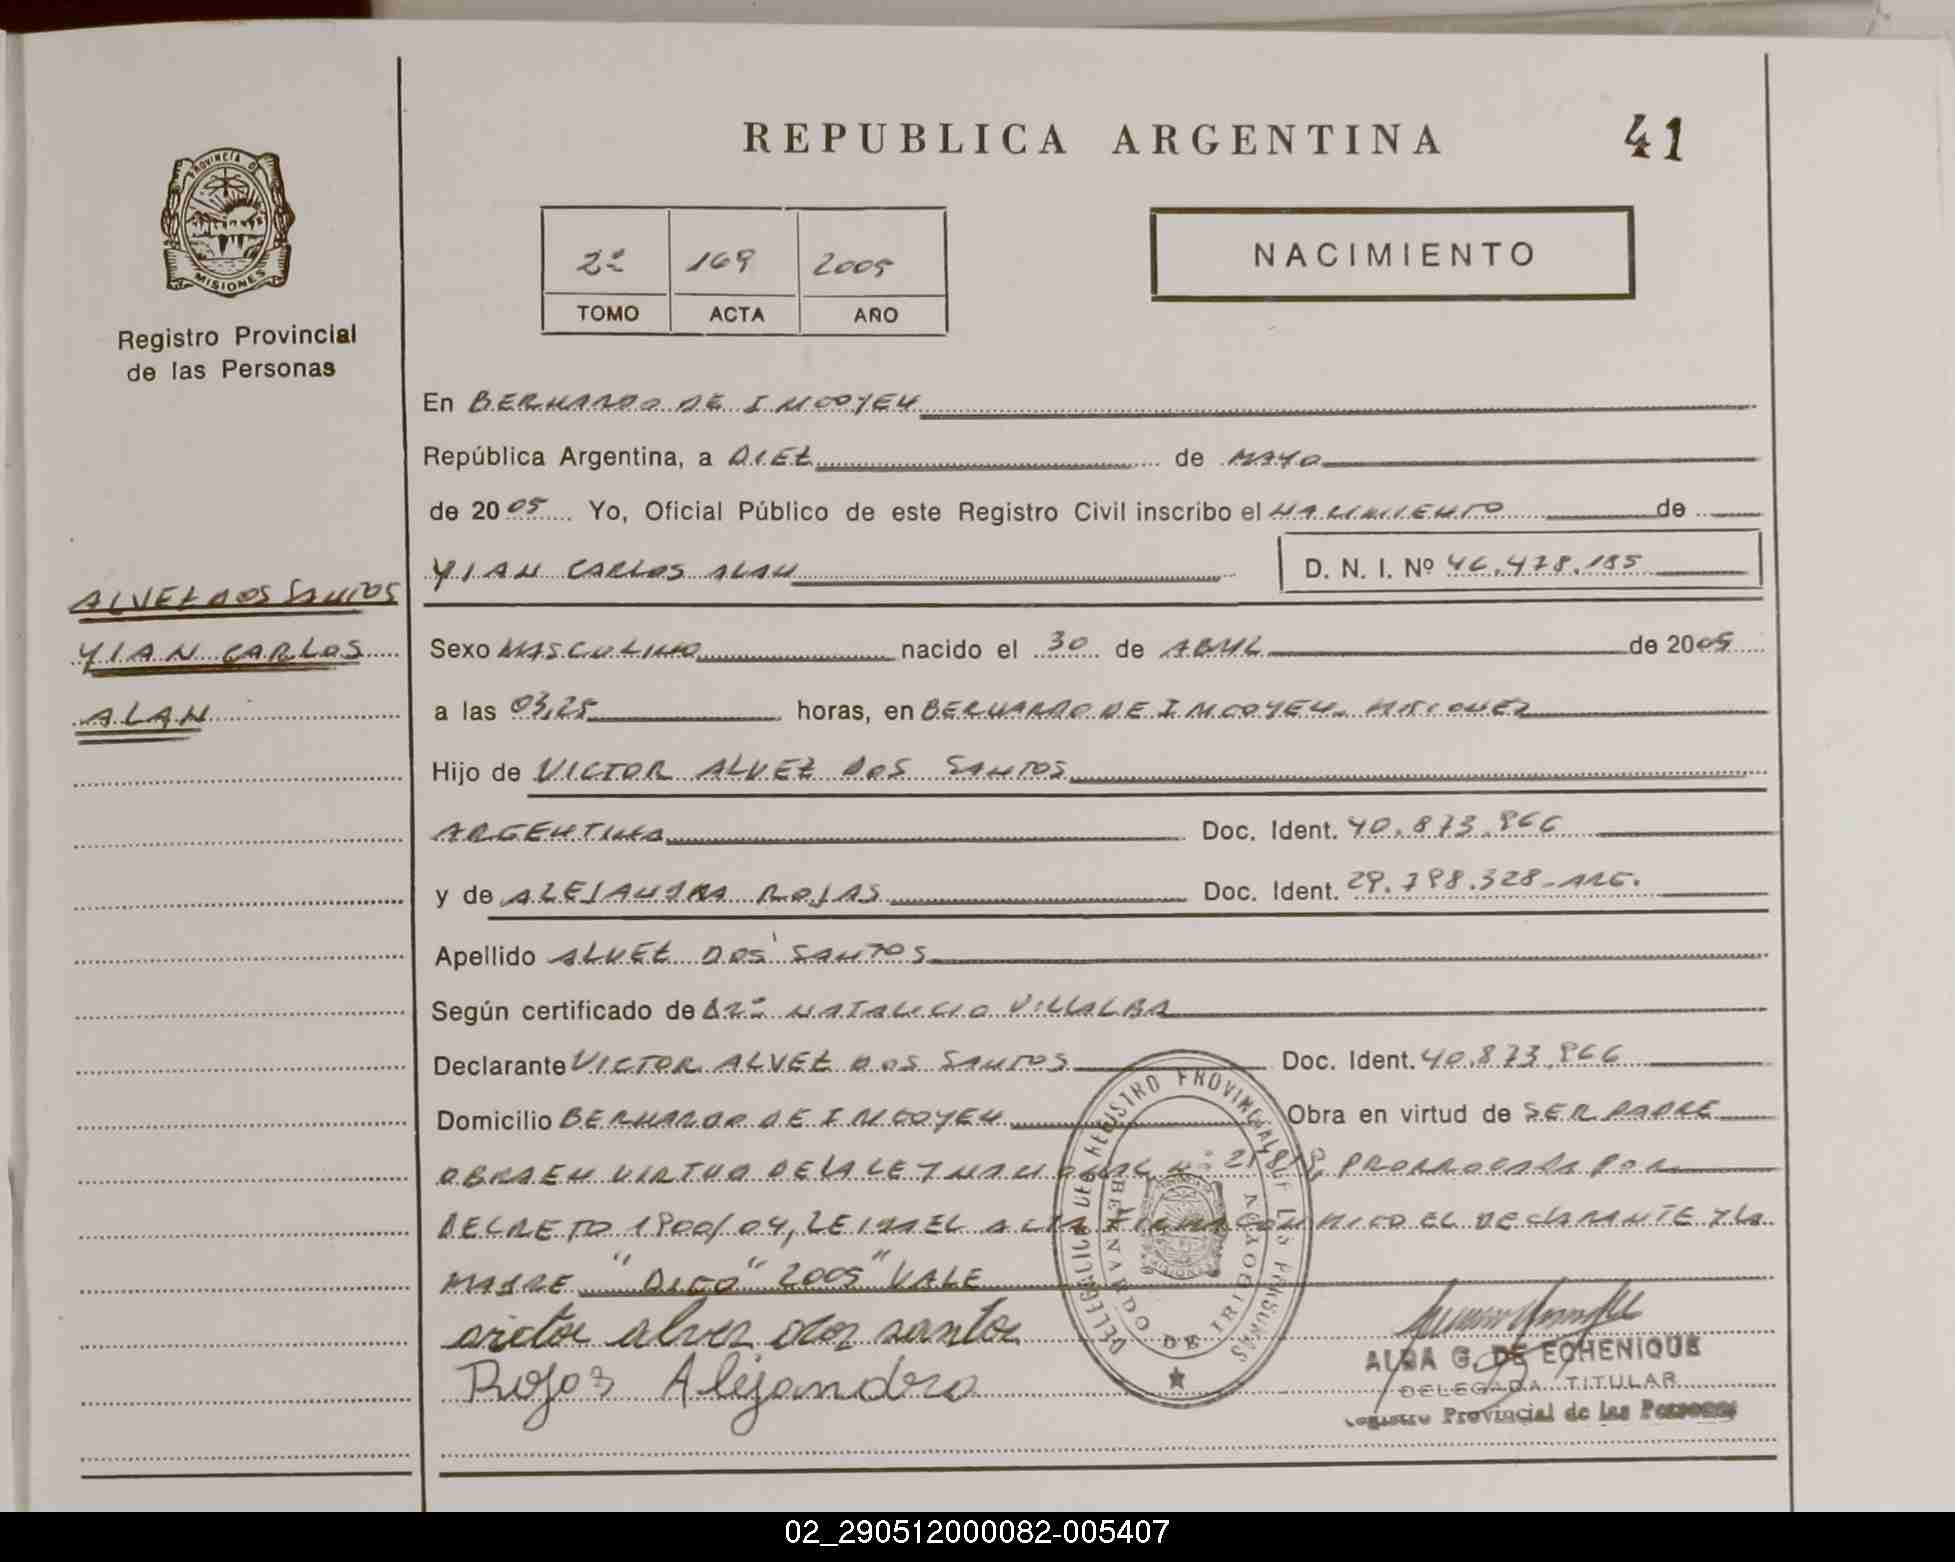 REPUBLICA ARGENTINA
41
PROVINCIA DE
MISIONES
Registro Provincial
de las Personas
2º 169 2005
TOMO ACTA AÑO
NACIMIENTO
En BERNARDO DE IRIGOYEN
República Argentina, a DIEZ de MAYO
de 2005 Yo, Oficial Público de este Registro Civil inscribo el NACIMIENTO de
YIAN CARLOS ALAN D. N. I. Nº 46.478.185
ALVEZ DOS SANTOS
YIAN CARLOS
ALAN
Sexo MASCULINO nacido el 30 de ABRIL de 2005
a las 03,25 horas, en BERNARDO DE IRIGOYEN. MISIONES
Hijo de VICTOR ALVEZ DOS SANTOS
ARGENTINO Doc. Ident. 40.873.866
y de ALEJANDRA ROJAS Doc. Ident. 29.798.328-ARG.
Apellido ALVEZ DOS SANTOS
Según certificado de NATALICIO VILLALBA
Declarante VICTOR ALVEZ DOS SANTOS Doc. Ident. 40.873.866
Domicilio BERNARDO DE IRIGOYEN Obra en virtud de SER PADRE
OBRA EN VIRTUD DE LA LEY NACIONAL Nº PRORROGADA POR
DECRETO 1900/04, LEIDA EL ACTA FIRMA CONMIGO EL DECLARANTE Y LA
MADRE "DIGO" 2005" VALE
victor alvez dos santos
Rojas Alejandra
REGISTRO PROVINCIAL DE LAS PERSONAS
BERNARDO DE IRIGOYEN
ALBA G. DE ECHENIQUE
DELEGADA TITULAR
Registro Provincial de las Personas
02_290512000082-005407